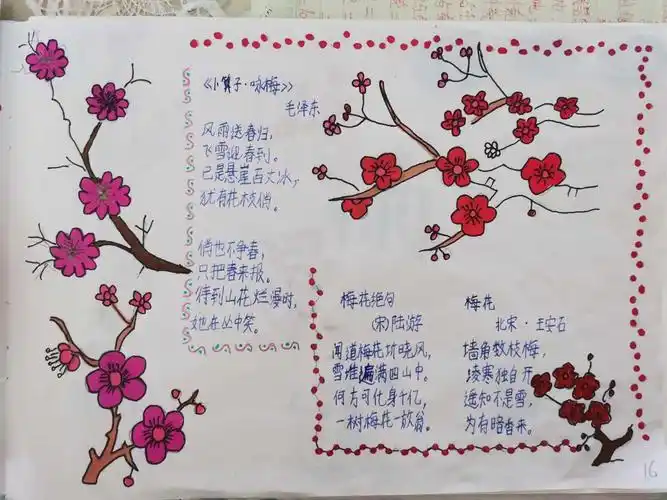 《卜算子·咏梅》
毛泽东
风雨送春归，
飞雪迎春到。
已是悬崖百丈冰，
犹有花枝俏。
俏也不争春，
只把春来报。
待到山花烂漫时，
她在丛中笑。
梅花绝句
(宋)陆游
闻道梅花坼晓风，
雪堆遍满四山中。
何方可化身千亿，
一树梅花一放翁。
梅花
北宋·王安石
墙角数枝梅，
凌寒独自开
遥知不是雪，
为有暗香来。
16